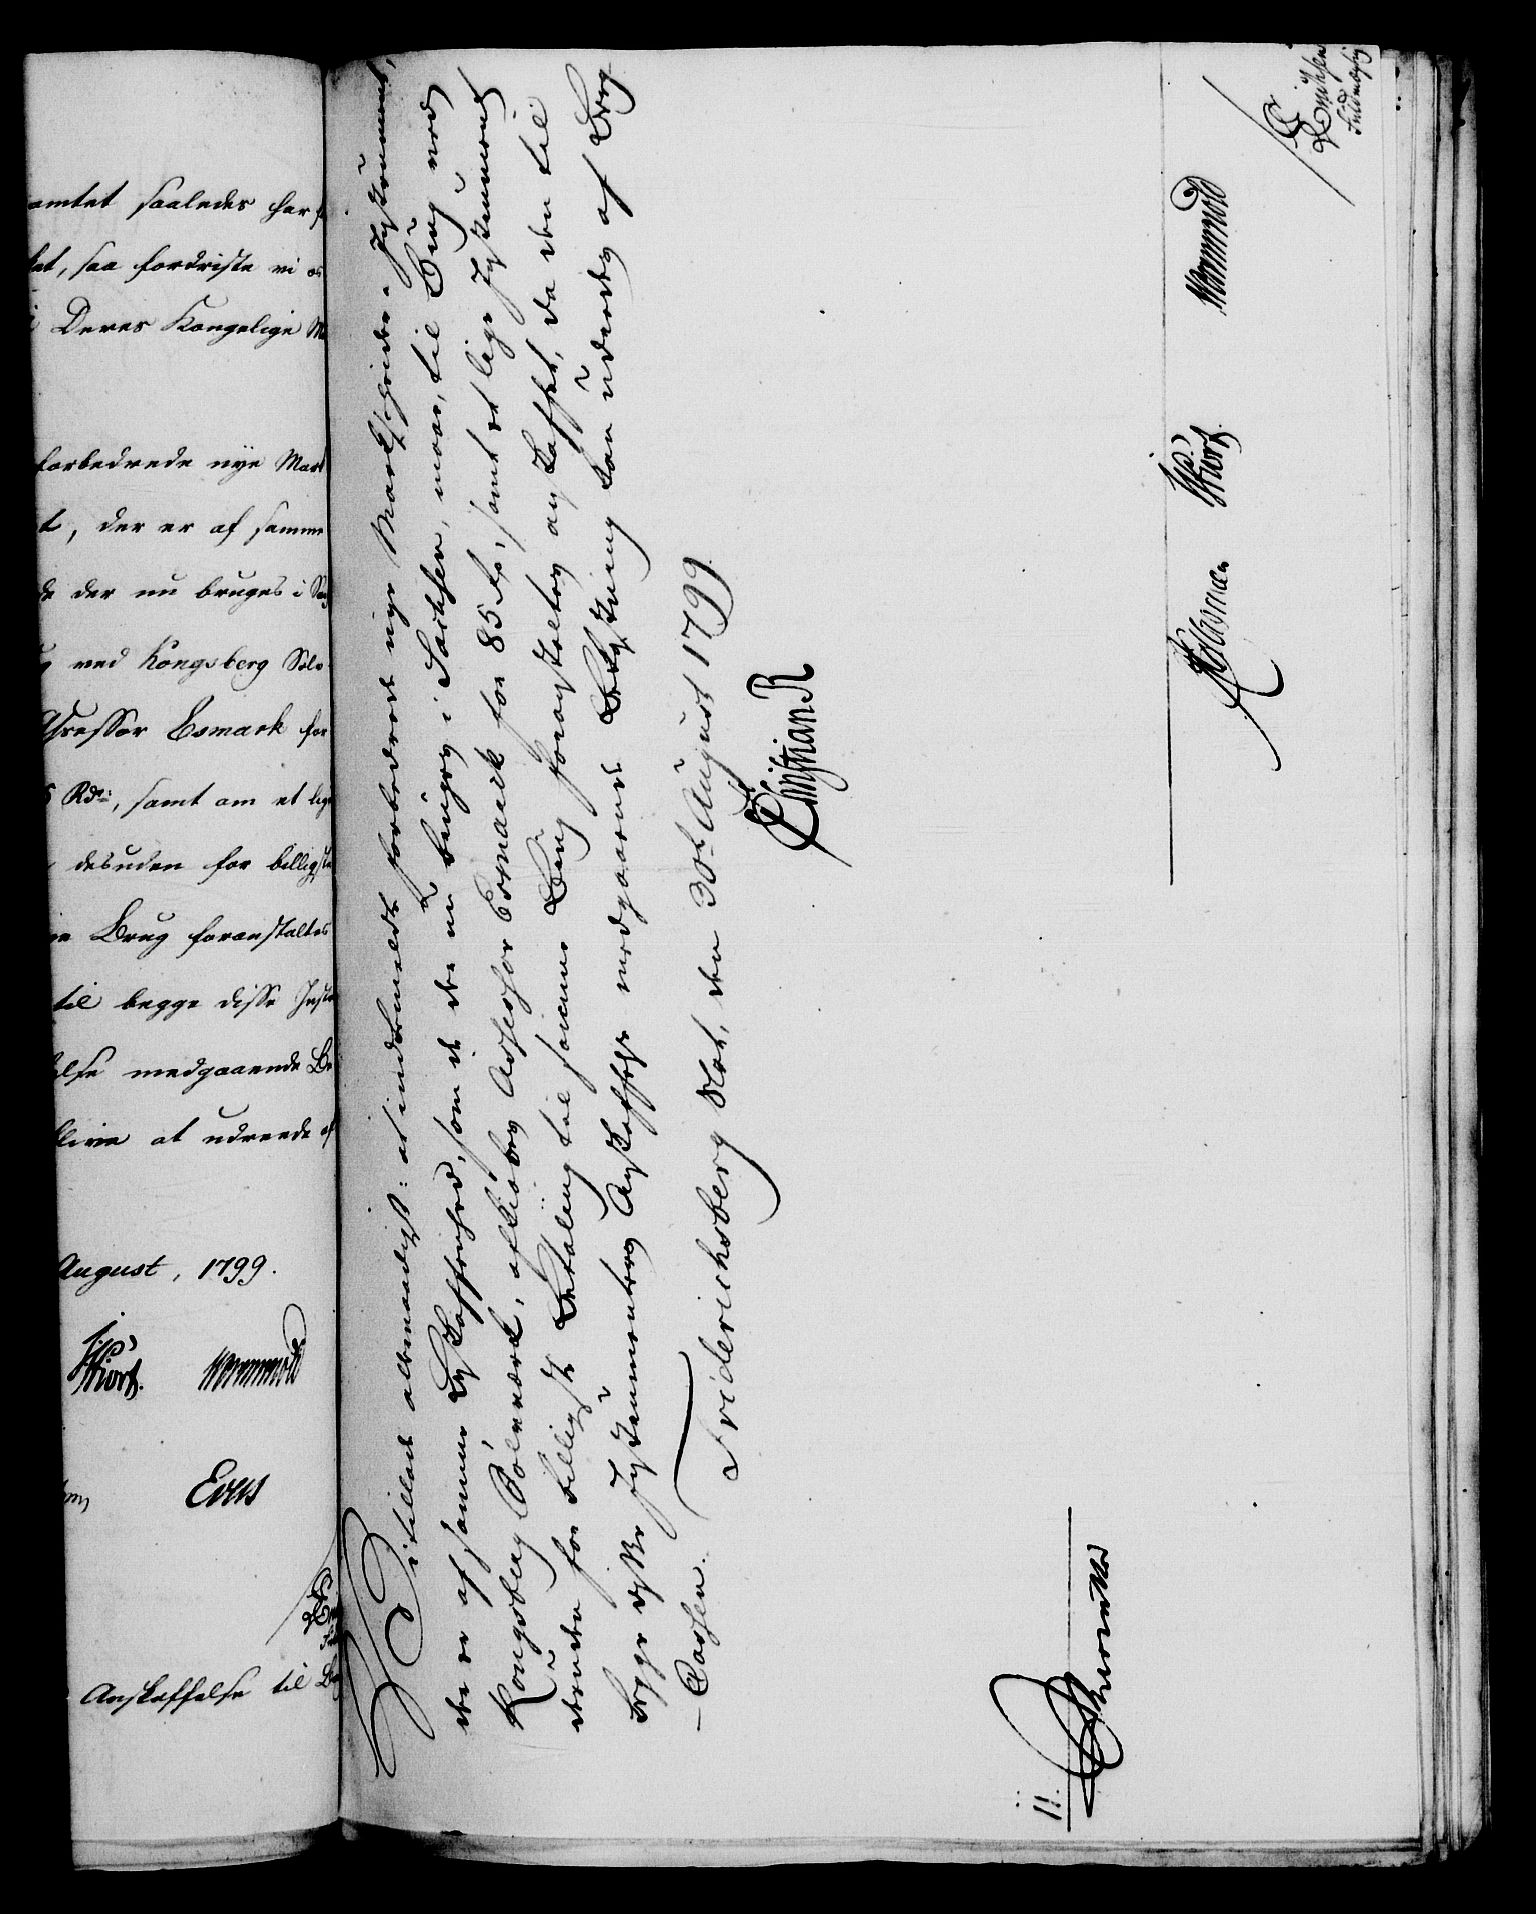 amtet saaledes har
tet, saa fordriste vi os
i Deres Kongelige M
forbedrede nye Mark
t, der er af samme
de der nu bruges i Sax
g ved Kongsberg Sølv
Assessor Esmark for
5 Rdr, samt om et lige
desuden for billigste
ne Brug foranstaltes
til begge disse Instr
else medgaaende Be
blive at udreede af
August, 1799.
Hiort. Wormwold
Evers
Anskaffelse til Be
Vi tillade allernaadigst: at indbemeldte forbedrede nye Markscheider-Instrument,
der er af samme Beskaffenhed, som de der nu bruges i Sachsen, maae, til Brug ved
Kongsberg Sølvværk, afkiøbes Assessor Esmark for 85 Rdr, samt et lige Instrument
derfra for billigste Betaling til samme Brug foranstaltes anskaffet, da den til
begge diske Instrumenters Anskaffelse medgaaende Bekostning kan udredes af Berg-
Cassen. Friderichsberg Slot, den 30te August 1799.
Christian R
11.
Wormwold
Hiort.